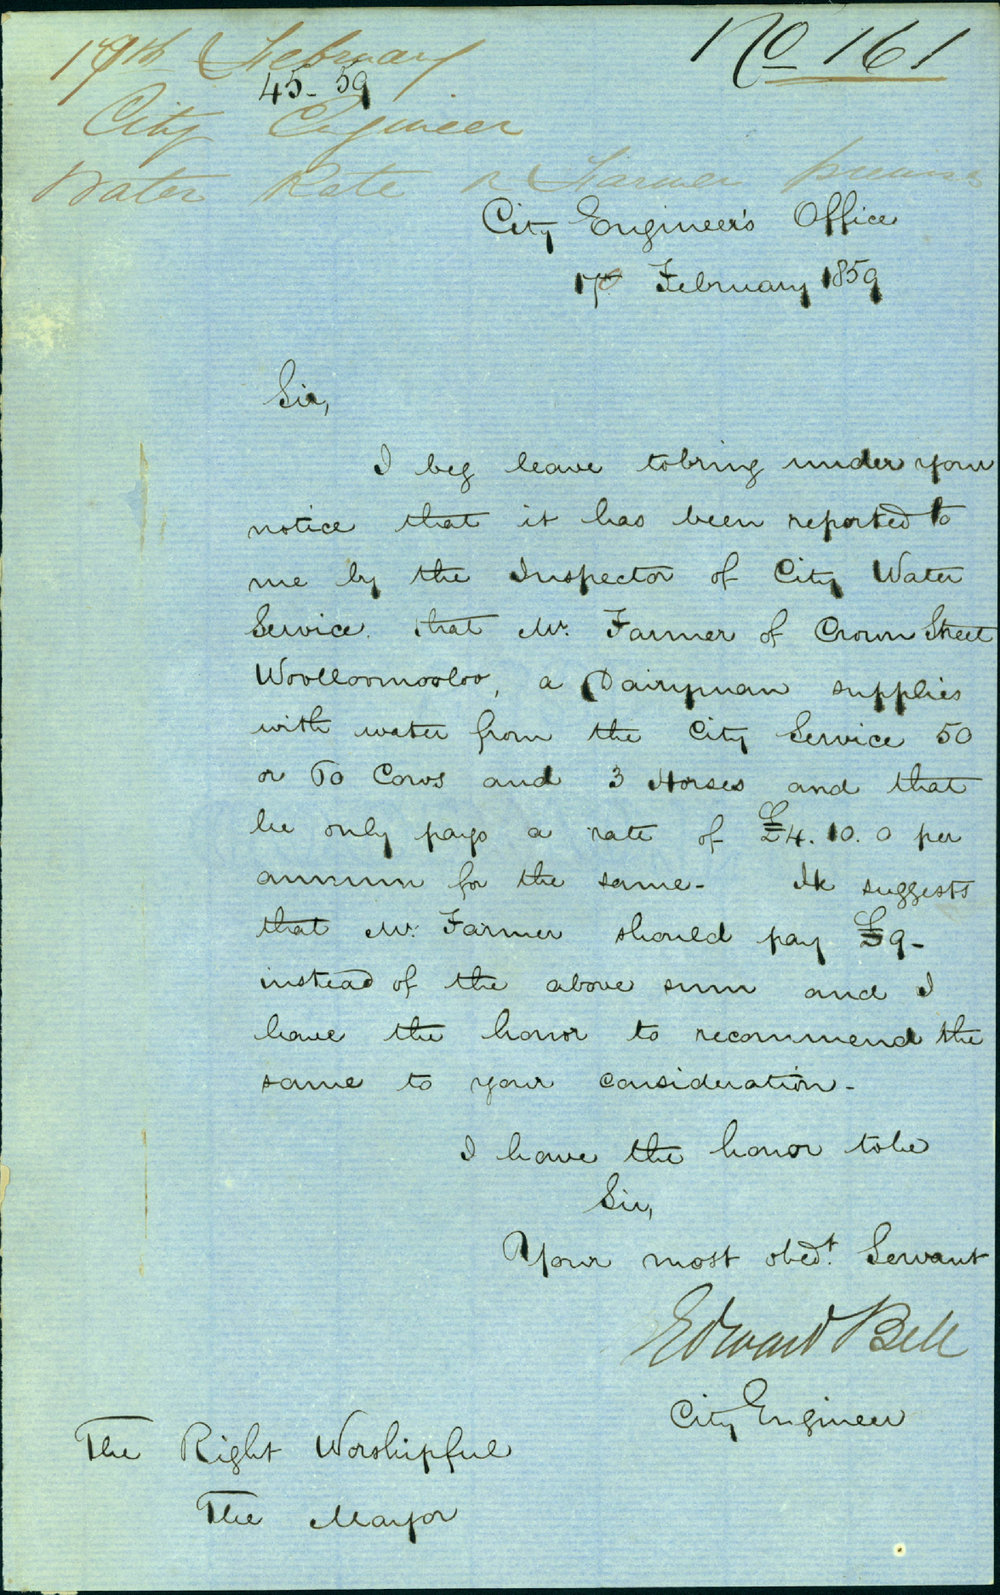 17th February
No 161
45-59
City Engineer
Water Rate Farmer
City Engineer's Office
17th February 1859
Sir,
I beg leave tobring under your
notice that it has been reported to
me by the Inspector of City Water
Service. that Mr. Farmer of Crown Street
Woolloomooloo, a Dairyman supplies
with water from the City Service 50
or 60 Cows and 3 Horses and that
he only pays a rate of £4.10.0 per
annum for the same - He suggests
that Mr. Farmer should pay £9 -
instead of the above sum and I
have the honor to recommend the
same to your consideration -
I have the honor tobe
Sir,
Your most obedt. Servant
Edward Bell
City Engineer
The Right Worshipful
The Mayor